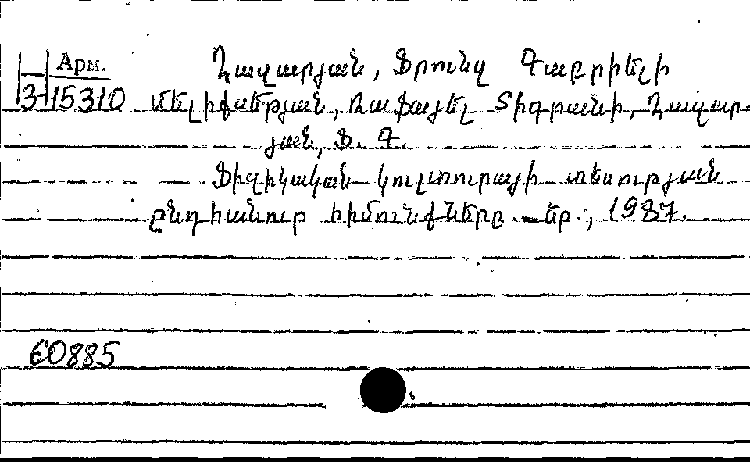 Арм. Ղազարյան, Ֆրունզ Գաբրիելի
3-15310 Մելիքսեթյան, Ռաֆայել Տիգրանի, Ղազար
յան, Ֆ. Գ.
Ֆիզիկական կուլտուրայի տեսության
ընդհանուր հիմունքները. Եր., 1987.
60885